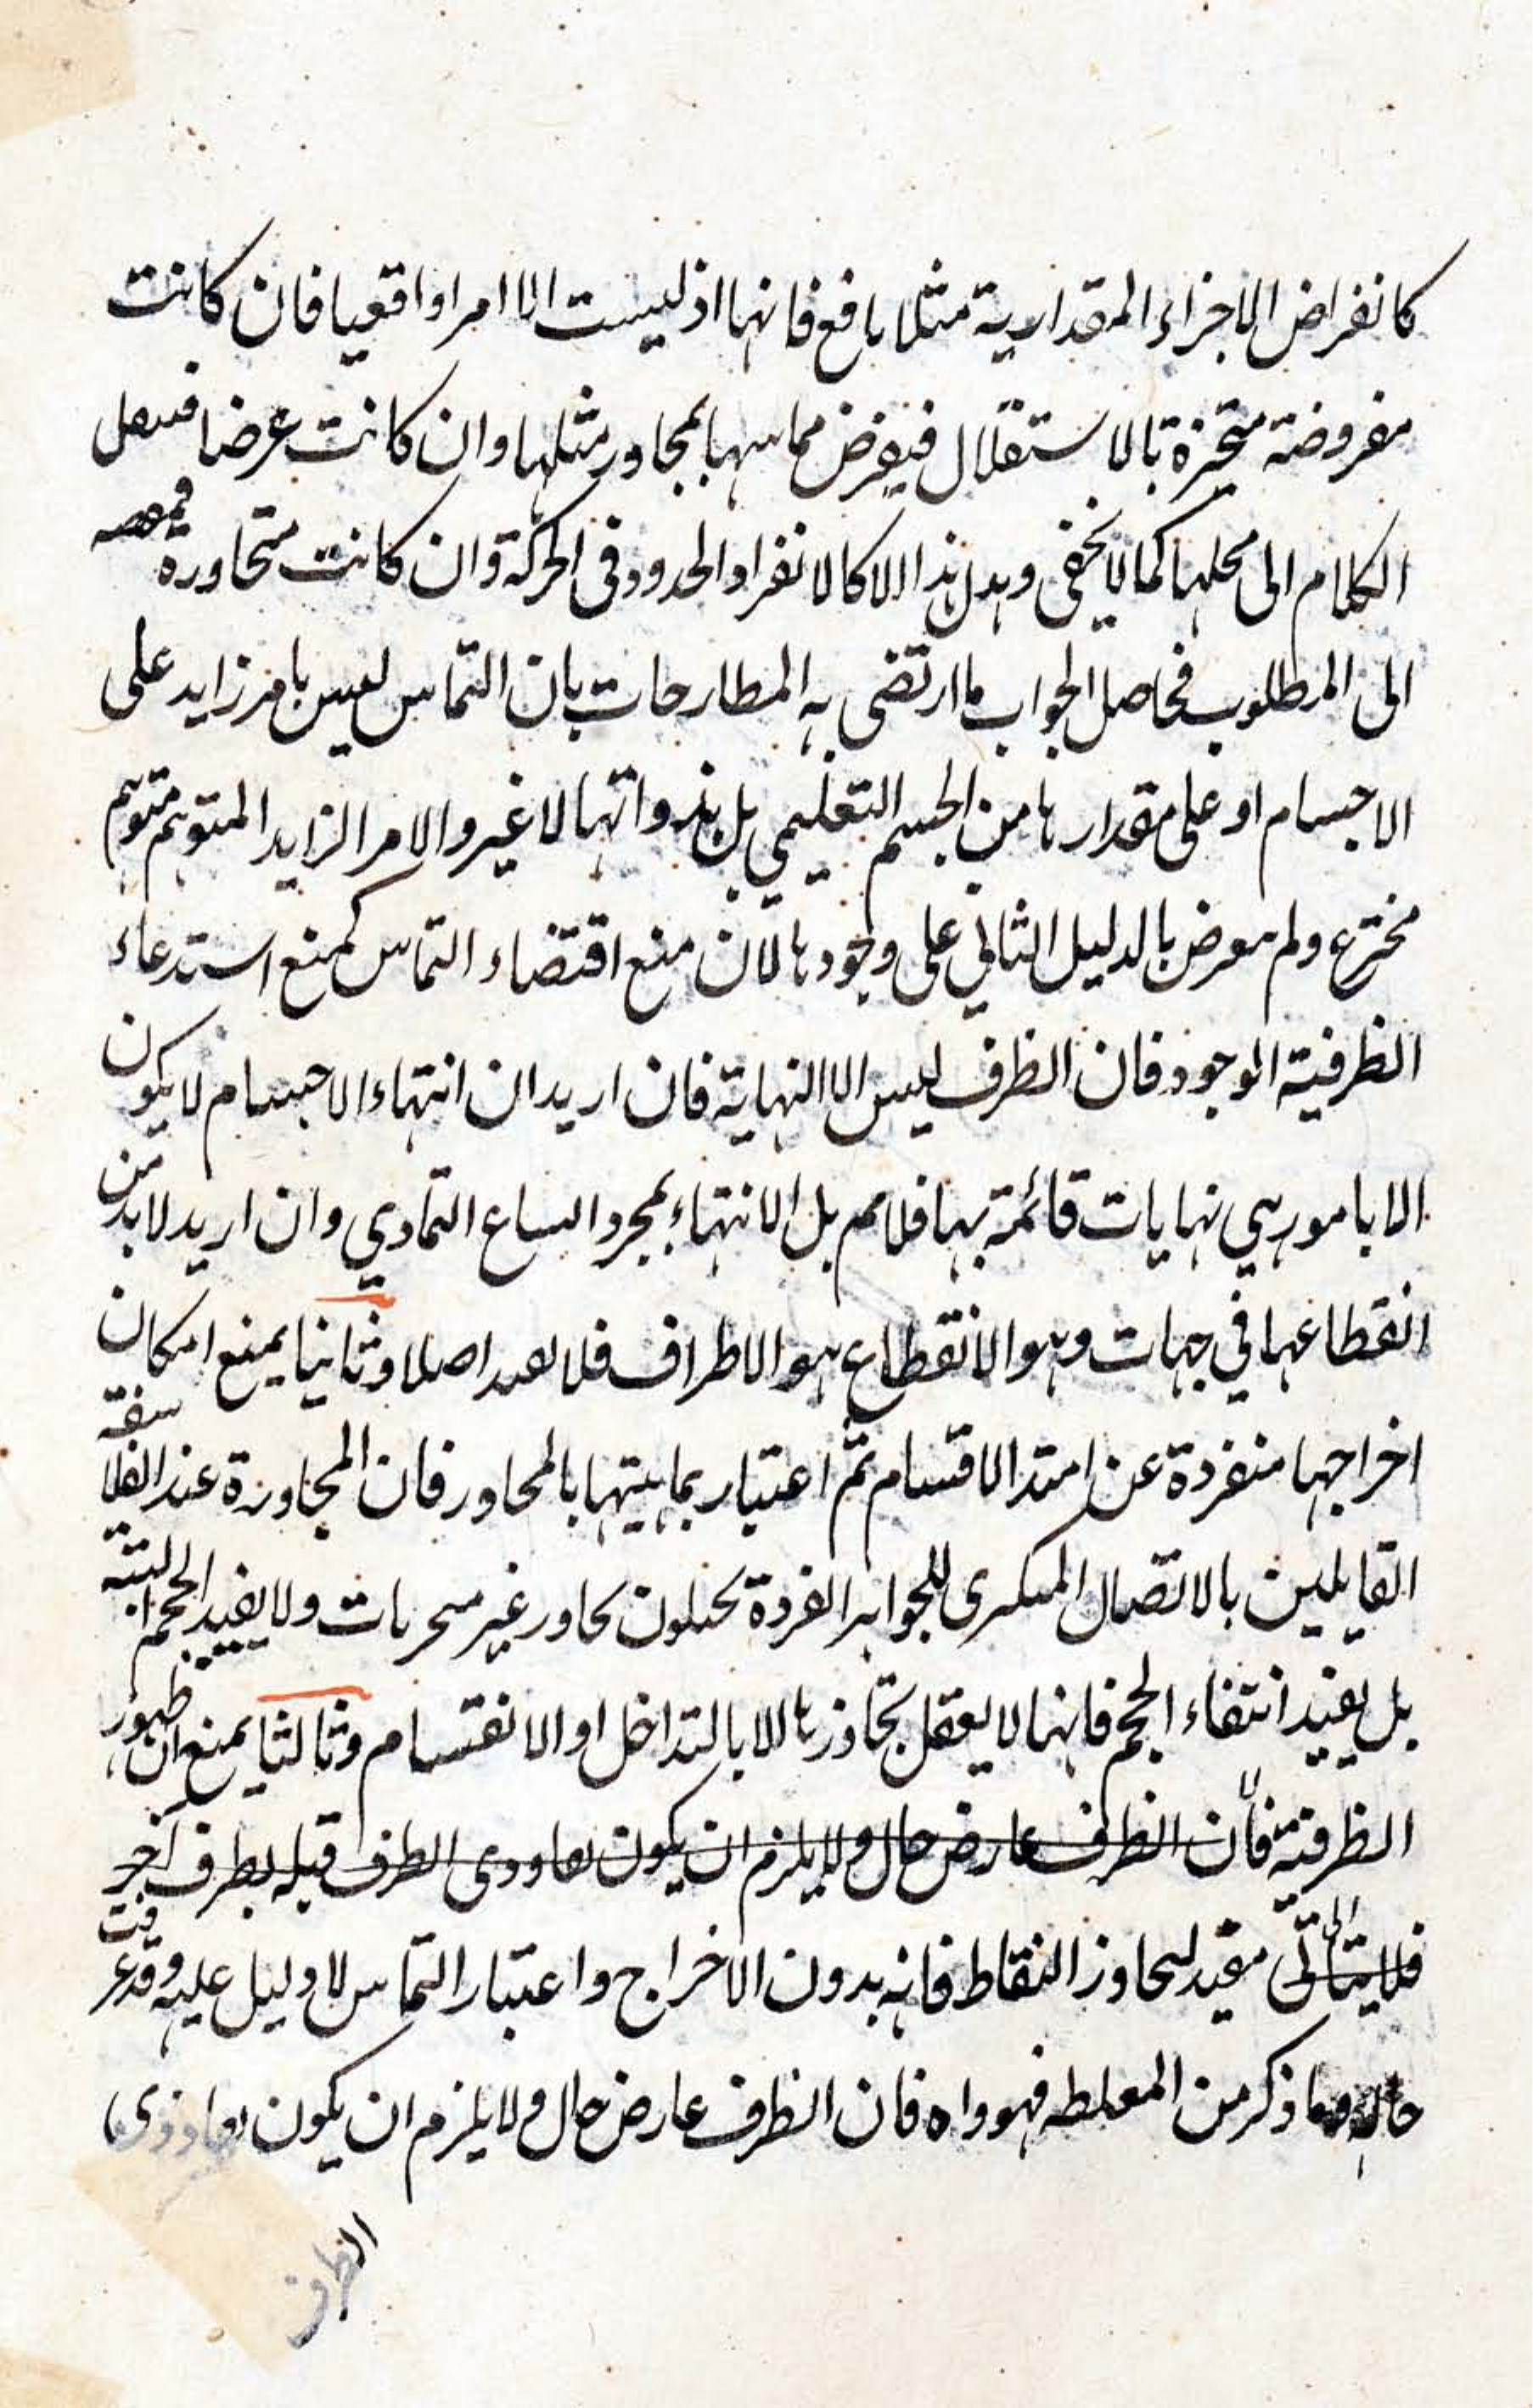 كانفراض الاجزاء المقدارية مثلا يا فع فانها اذ ليست الا امرا واقعيا فان كانت
مفروضة متحيزة بالاستقلال فيفرض مماسها بمجاور مثلها وان كانت عرضا فننقل
الكلام الى محلها كما لا يخفى وهل هذا الا كالانفراد الحدود في الحركة وان كانت متجاورة
الى المطلوب فحاصل الجواب ما ارتضى به المطارحات بان التماس ليس بامر زايد على
الاجسام او على مقدارها من الجسم التعليمي بل بذواتها لا غير والامر الزايد المتوهم متوهم
مخترع ولم يعرض بالدليل الثاني على وجودها لان منع اقتضاء التماس كمنع استدعاء
الظرفية الموجود فان الظرف ليس الا النهاية فان اريد ان انتهاء الاجسام لا يكون
الا بامور هي نهايات قائمة بها فلا مم بل الانتهاء بمجرد التمادي وان اريد لا بد من
انقطاعها في جهات وهو الانقطاع هو الاطراف فلا اصلا وثانيا يمنع امكان
اخراجها منفردة عن امتد الاقسام ثم اعتبار بالمجاور فان المجاورة عند الفلاسفة
القايلين بالاتصال للجواهر الفردة غير ولا يفيد الحجم البتة
بل يفيد انتفاء الحجم فانها لا يعقل تجاوزها الا بالتداخل او الانقسام وثالثا يمنع ان ظهور
الظرفية فان الظرف عارض حال ولا يلزم ان يكون الطرف قبله بطرف آخر
مقيد لتجاوز النقاط فانه بدون الاخراج واعتبار التماس لا دليل عليه وقد عرفت
حاله وما ذكر من المغلطه فهو واه فان الظرف عارض حال ولا يلزم ان يكون
الطرف